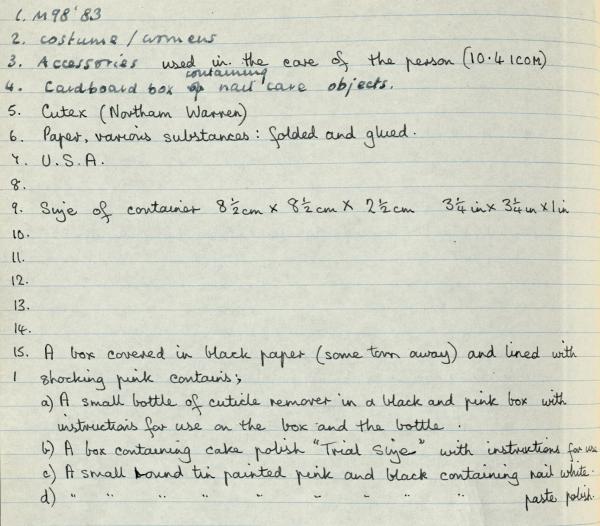 1. M98'83
2. costume / womens
3. Accessories used in the care of the person (10.4 ICOM)
4. Cardboard box containing nail care objects.
5. Cutex (Northam Warren)
6. Paper, various substances: folded and glued.
7. U.S.A.
8.
9. Size of container 8½cm x 8½cm x 2½cm 3¼in x 3¼in x 1in
10.
11.
12.
13.
14.
15. A box covered in black paper (some torn away) and lined with
1 shocking pink contains;
a) A small bottle of cuticle remover in a black and pink box with
instructions for use on the box and the bottle.
b) A box containing cake polish "Trial Size" with instructions for use
c) A small round tin painted pink and black containing nail white.
d) " " " " " " " " " paste polish.